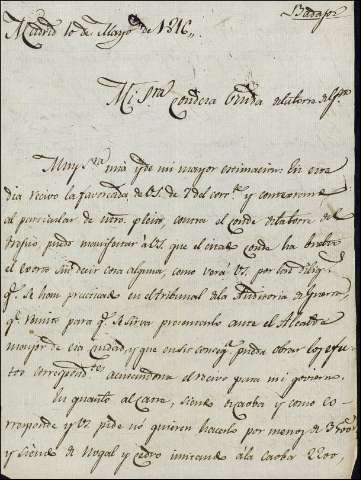 Badajoz
Madrid 10 de Mayo de 1816,,
Mi Sra Condesa Viuda de la torre del fro
Muy Sra mia y de mi mayor estimacion: En este
dia recivo la favorecida de VS. de 7 del corte y contextando
al particular de ntro. pleito, contra el conde de la torre del
fresno, puedo manifestar a VS. que el citado Conde ha buelto
el exorto sin decir cosa alguna, como verá VS. por las dilig.s
q.e se han practicado en el tribunal de la Auditoria de Guerra,
q.e remito para q.e se sirva presentarlo ante el Alcalde
mayor de esa ciudad, y que en su conseq.a pueda obrar los efec
tos correspond.tes acusandome el recivo para mi govierno.
En quanto al Catre, siendo de caoba y como co-
rresponde y VS. pide no quieren hacerlo por menos de 3500
y siendo de Nogal y cedro imitando á la caoba 2200,